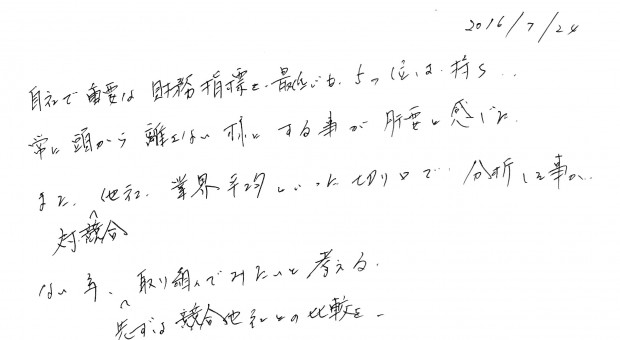 2016/7/24
自社で重要な財務指標を、最低でも、5つ位は、持ち、
常に頭から離れない様にする事が肝要と感じた。
また、他社、業界平均といった切り口で、分析した事が、
対競合
ない為、取り組んでみたいと考える。
先ずは競合他社との比較を、